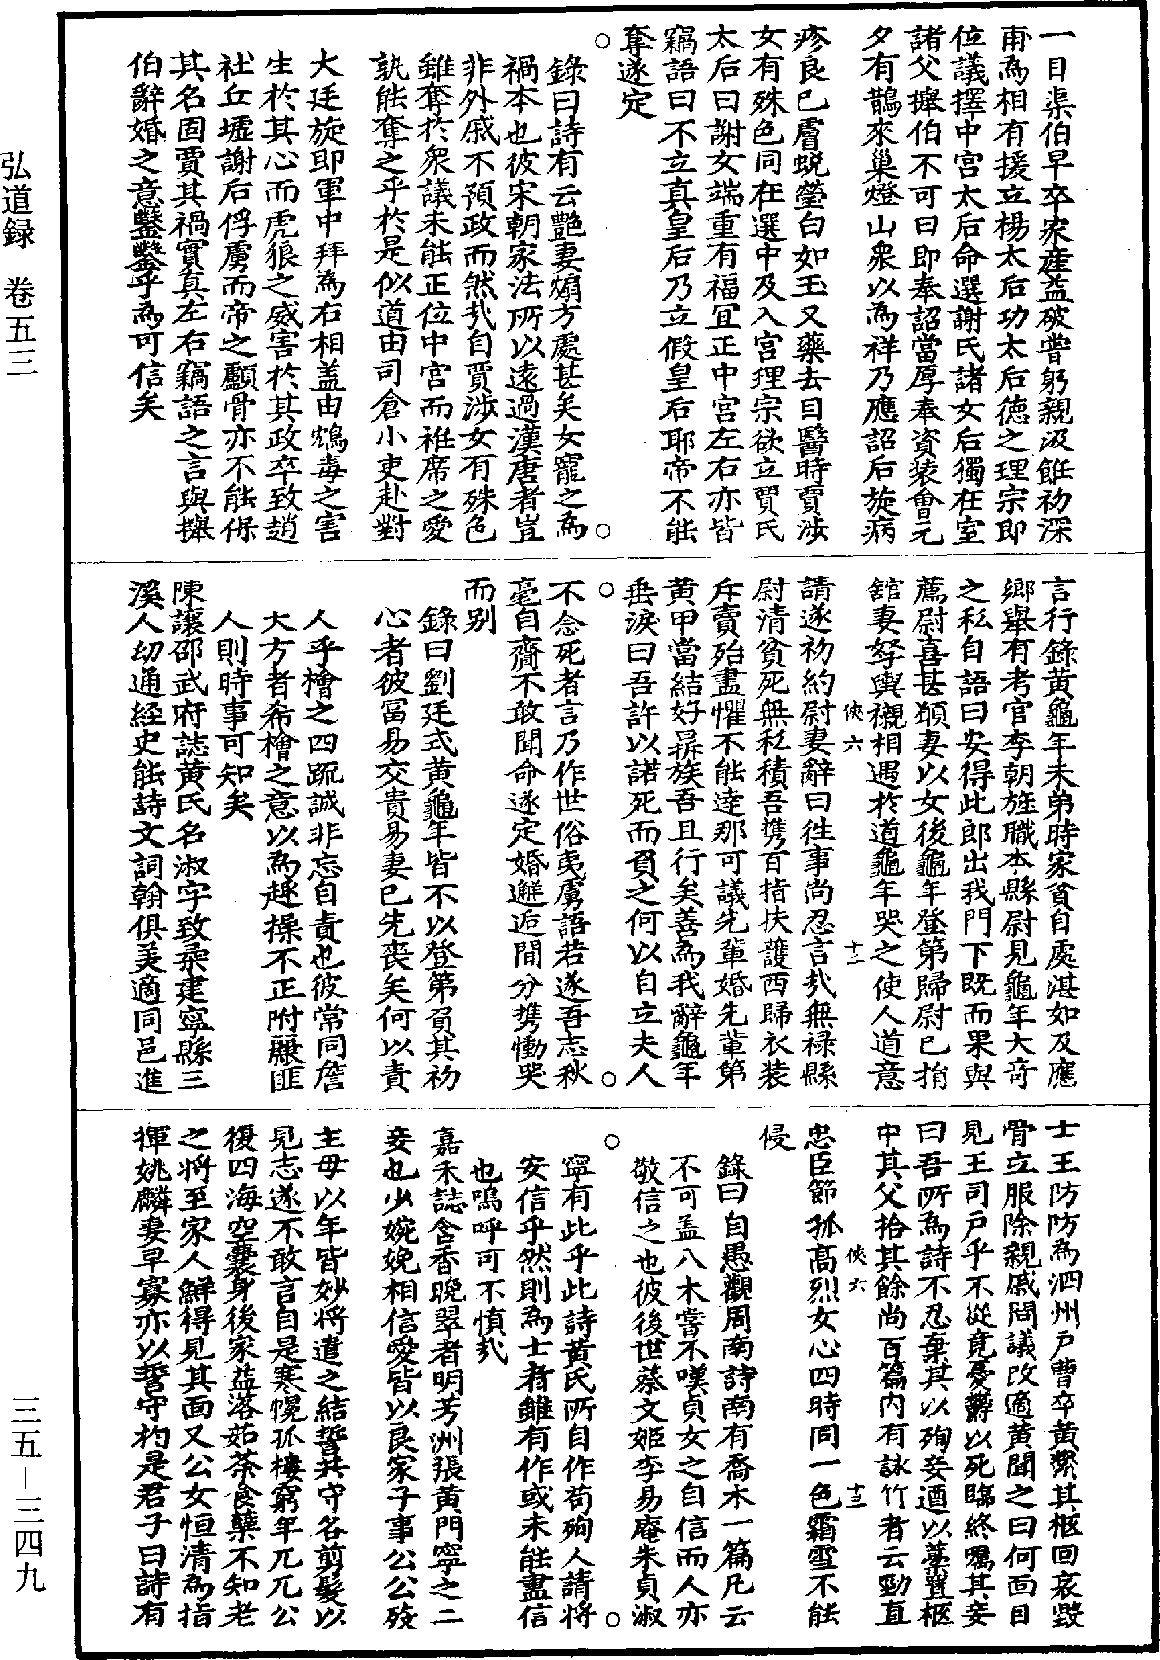 一目渠伯早卒家產益破嘗躬親汲飪初深
甫為相有援立楊太后功太后德之理宗即
位議擇中宮太后命選謝氏諸女后獨在室
諸父攑伯不可曰即奉詔當厚奉資裝會元
夕有鵲來巢燈山衆以為祥乃應詔后旋病
疹良已膚蛻瑩白如玉又藥去目醫時賈涉
女有殊色同在選中及入宮理宗欲立賈氏
太后曰謝女端重有福宜正中宮左右亦皆
竊語曰不立真皇后乃立假皇后耶帝不能
奪遂定
○錄曰詩有云艷妻煽方處甚矣女寵之為○
禍本也彼宋朝家法所以遠過漢唐者豈
非外戚不預政而然哉自賈涉女有殊色
雖奪於衆議未能正位中宮而袵席之愛
孰能奪之乎於是似道由司倉小吏赴對
大廷旋即軍中拜為右相盖由鴆毒之害
生於其心而虎狼之威害於其政卒致趙
社丘墟謝后俘虜而帝之顱骨亦不能保
其名固賈其禍實真左右竊語之言與攑
伯辭婚之意鑿鑿乎為可信矣
言行錄黃龜年未第時家貧自處湛如及應
鄉舉有考官李朝旌職本縣尉見龜年大奇
之私自語曰安得此郎出我門下既而果與
薦尉喜甚頋妻以女後龜年登第歸尉已捐
舘妻孥輿櫬相遇於道龜年哭之使人道意
俠六 十二
請遂初約尉妻辭曰徃事尚忍言哉無祿縣
尉清貧死無私積吾攜百指扶護西歸衣裝
斥賣殆盡懼不能達那可議先輩婚先輩第
黃甲當結好鼎族吾且行矣善為我辭龜年
○垂淚曰吾許以諾死而負之何以自立夫人○
不念死者言乃作世俗夷虜語若遂吾志秋
毫自齎不敢聞命遂定婚邂逅間分攜慟哭
而别
錄曰劉廷式黃龜年皆不以登第負其初
心者彼冨易交貴易妻已先喪矣何以責
人乎檜之四䟽誠非忘自責也彼常同詹
大方者希檜之意以為趣操不正附䴡匪
人則時事可知矣
陳讓邵武府誌黃氏名淑字致柔建寧縣三
溪人㓜通經史能詩文詞翰俱美適同邑進
士王防防為泗州戶曹卒黃䌸其柩回哀毀
骨立服除親戚問議改適黃聞之曰何面目
見王司戶乎不從竟憂欝以死臨終囑其妾
曰吾所為詩不忍棄其以殉妾遒以藁置柩
中其父拾其餘尚百篇內有詠竹者云勁直
俠六 十三
忠臣節孤高烈女心四時同一色霜雪不能
侵
錄曰自愚觀周南詩南有喬木一篇凡云
不可盖八木嘗不嘆貞女之自信而人亦
敬信之也彼後世蔡文姬李易庵朱貞淑
○寧有此乎此詩黃氏所自作苟殉人請將○
安信乎然則為士者雖有作或未能盡信
也嗚呼可不慎哉
嘉禾誌含香晚翠者明芳洲張黃門寧之二
妾也少婉娩相信愛皆以良家子事公公歿
主母以年皆妙將遣之結誓共守各剪髮以
見志遂不敢言自是寒幌孤棲窮年兀兀公
復四海空囊身後家益落茹荼食蘗不知老
之將至家人鮮得見其面又公女恒清為指
揮姚麟妻早寡亦以誓守杓是君子曰詩有
弘道録 卷五三
三五－三四九